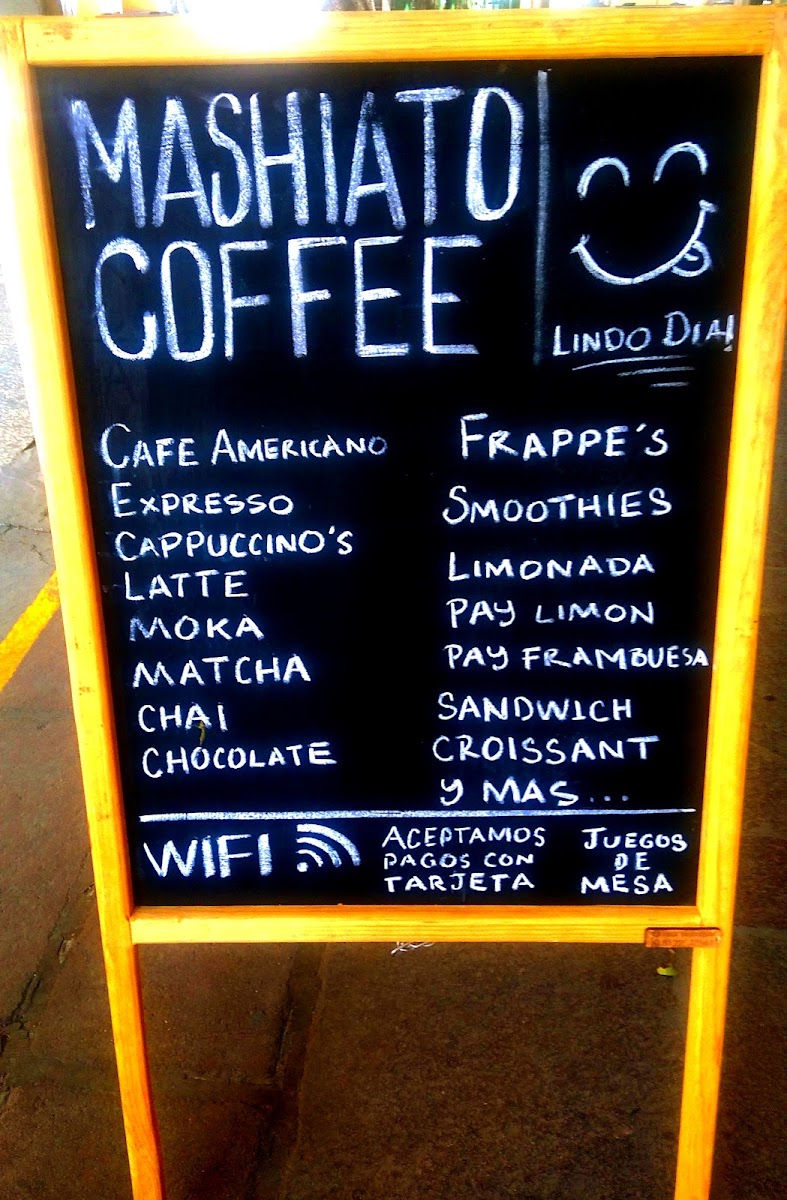 MASHIATO
COFFEE
LINDO DIA!
CAFE AMERICANO
EXPRESSO
CAPPUCCINO'S
LATTE
MOKA
MATCHA
CHAI
CHOCOLATE
FRAPPE'S
SMOOTHIES
LIMONADA
PAY LIMON
PAY FRAMBUESA
SANDWICH
CROISSANT
Y MAS...
WIFI
ACEPTAMOS
PAGOS CON
TARJETA
JUEGOS
DE
MESA